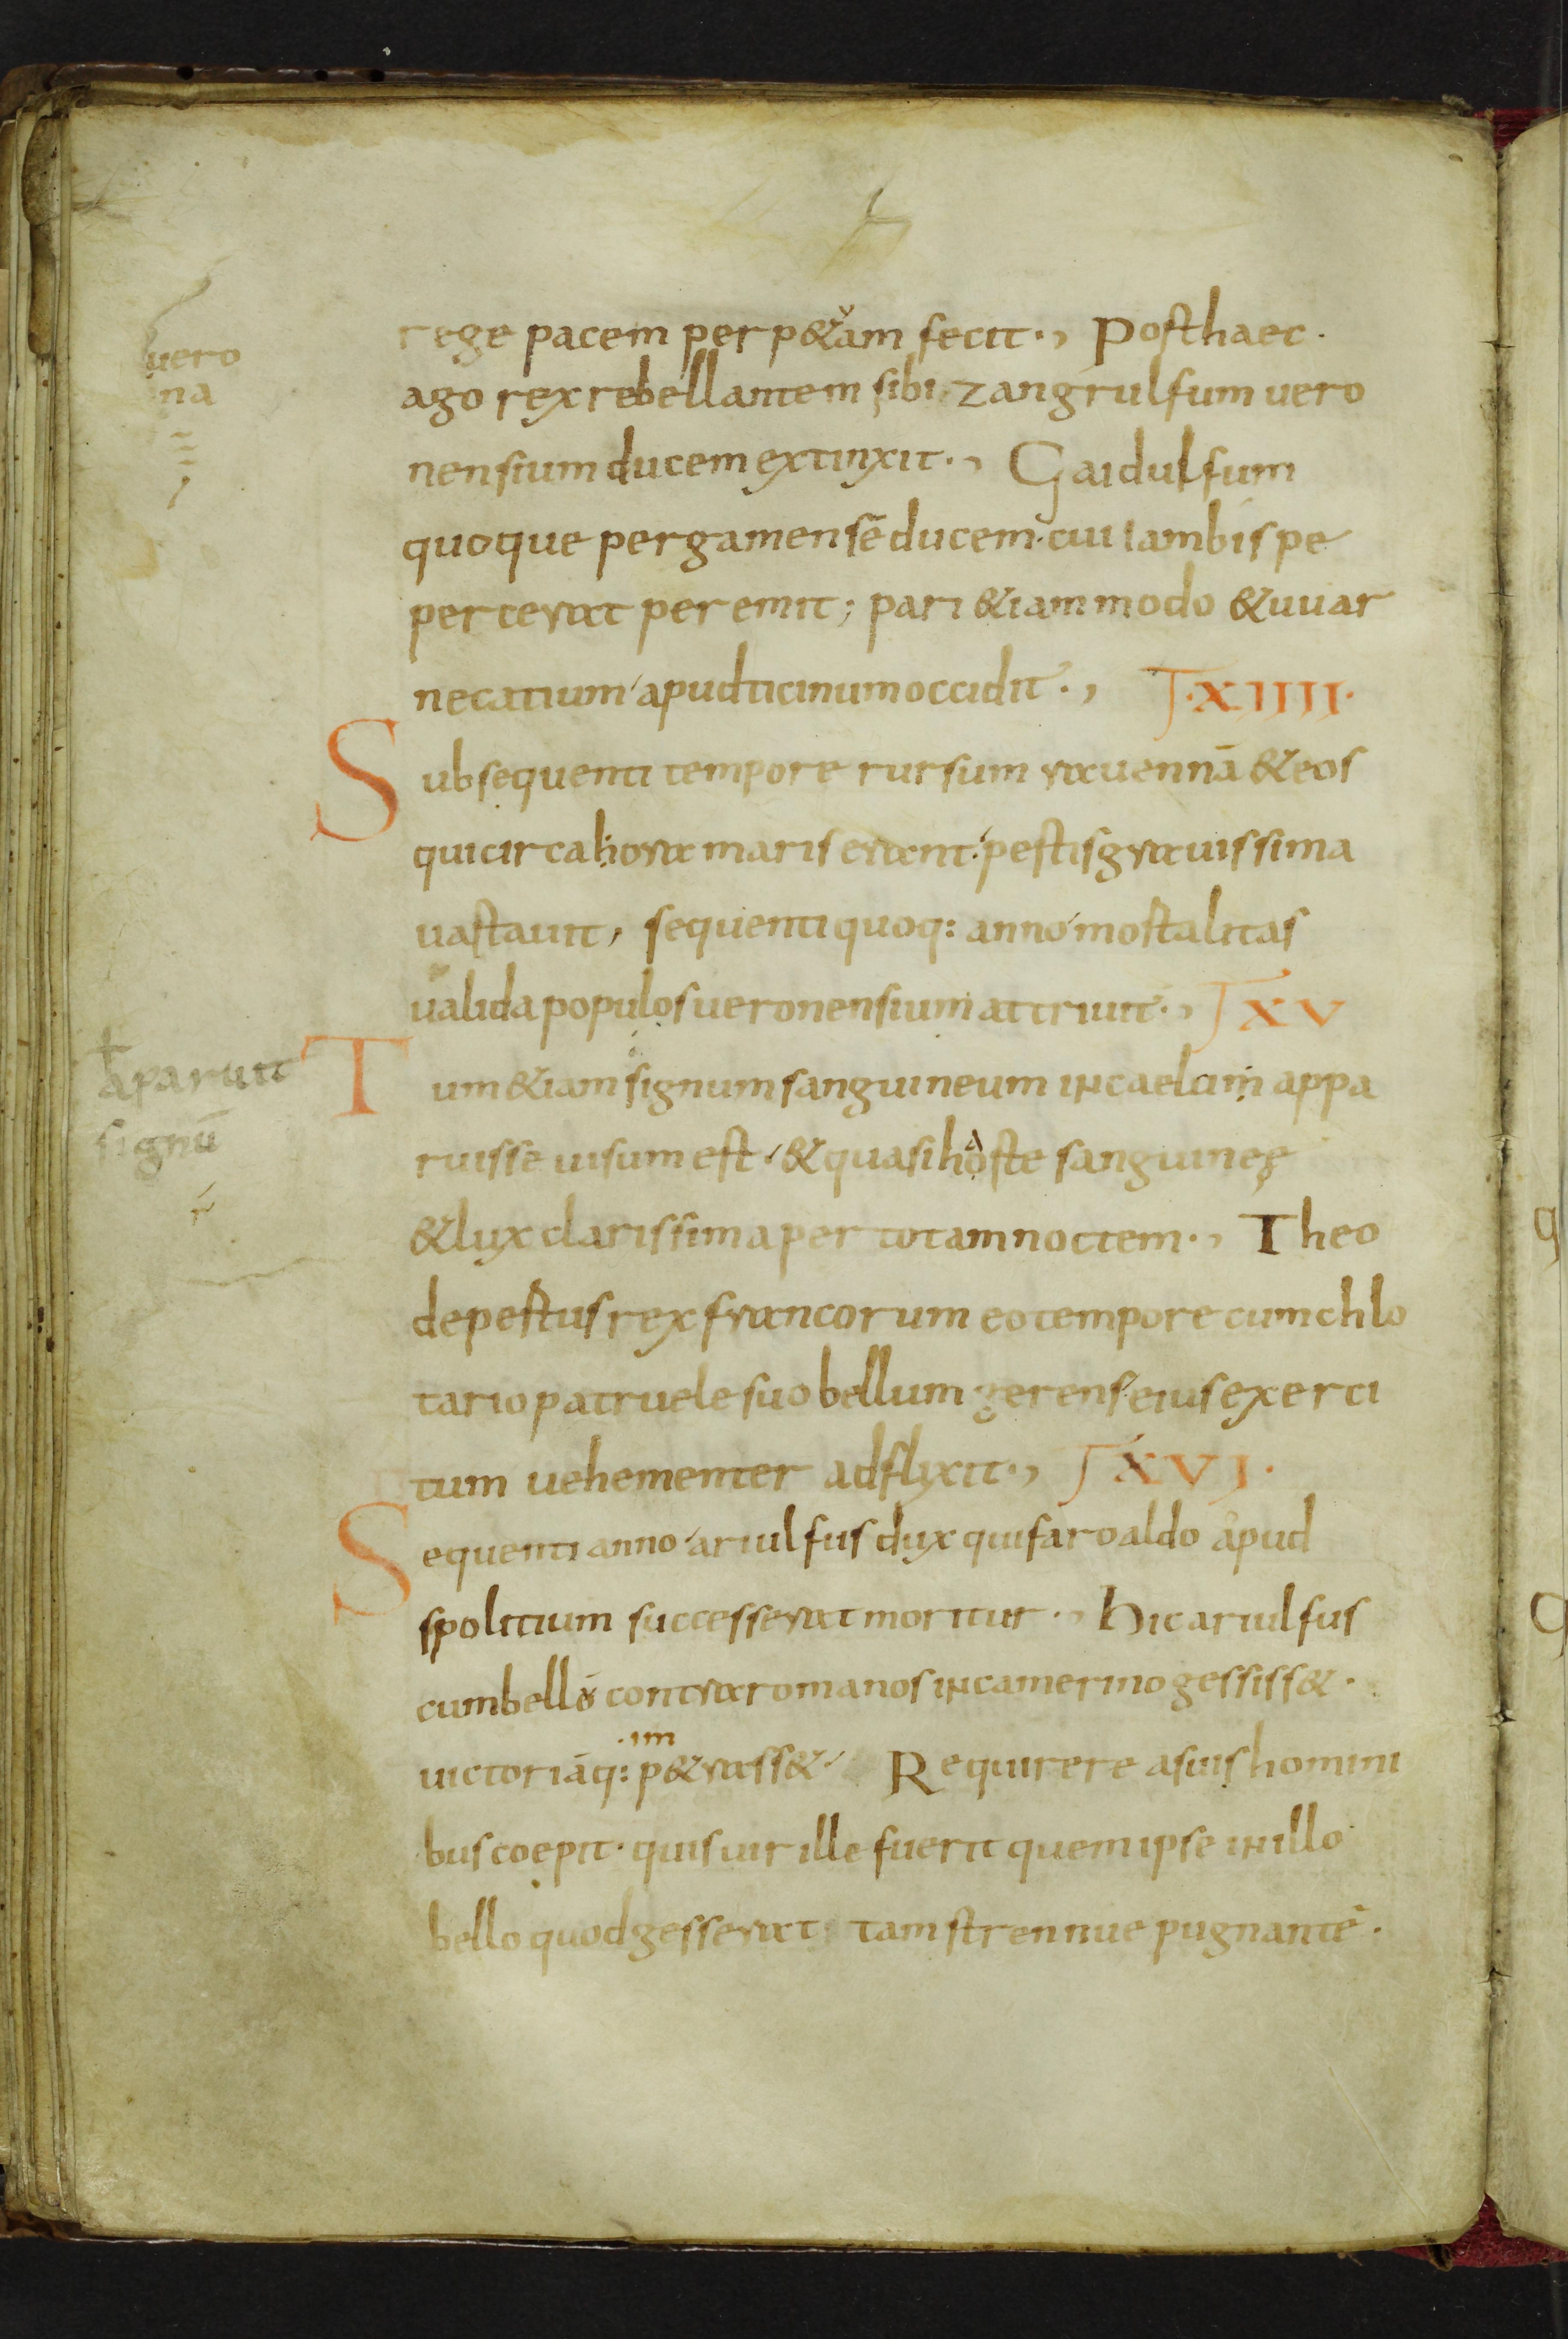 rege pacem perp&uam fecit·, Posthaec·
ago rex rebellantem sibi zangrulfum uero
nensium ducem extinxit·, Gaidulfum
quoque pergamensē ducem·cui iam bis pe
percerat peremit; pari &iam modo & uuar
necatium apud ticinum occidit·, ·XIIII·
Subsequenti tempore rursum rauennā & eos
qui circa hora maris erant· pestis grauissima
uastauit, sequenti quoq: anno mostalitas
ualida populos ueronensium attriuit·, XV
Tum &iam signum sanguineum in caelum appa
ruisse uisum est· & quasi haoste sanguineę
& lux clarissima per totam noctem·, Theo
depestus rex francorum eo tempore cum chlo
tario patruele suo bellum gerens eius exerci
tum uehementer adflixit·, XVI·
Sequenti anno ariulfus dux qui faroaldo apud
spolitium successerat moritur·, Hic ariulfus
cum bellū contra romanos in camerino gessiss&·
uictoriāq: imp&rass& Requirere a suis homini
bus coepit· quis uir ille fuerit quem ipse in illo
bello quod gesserat tam strennue pugnantē·
uero
na
aparuit
signū